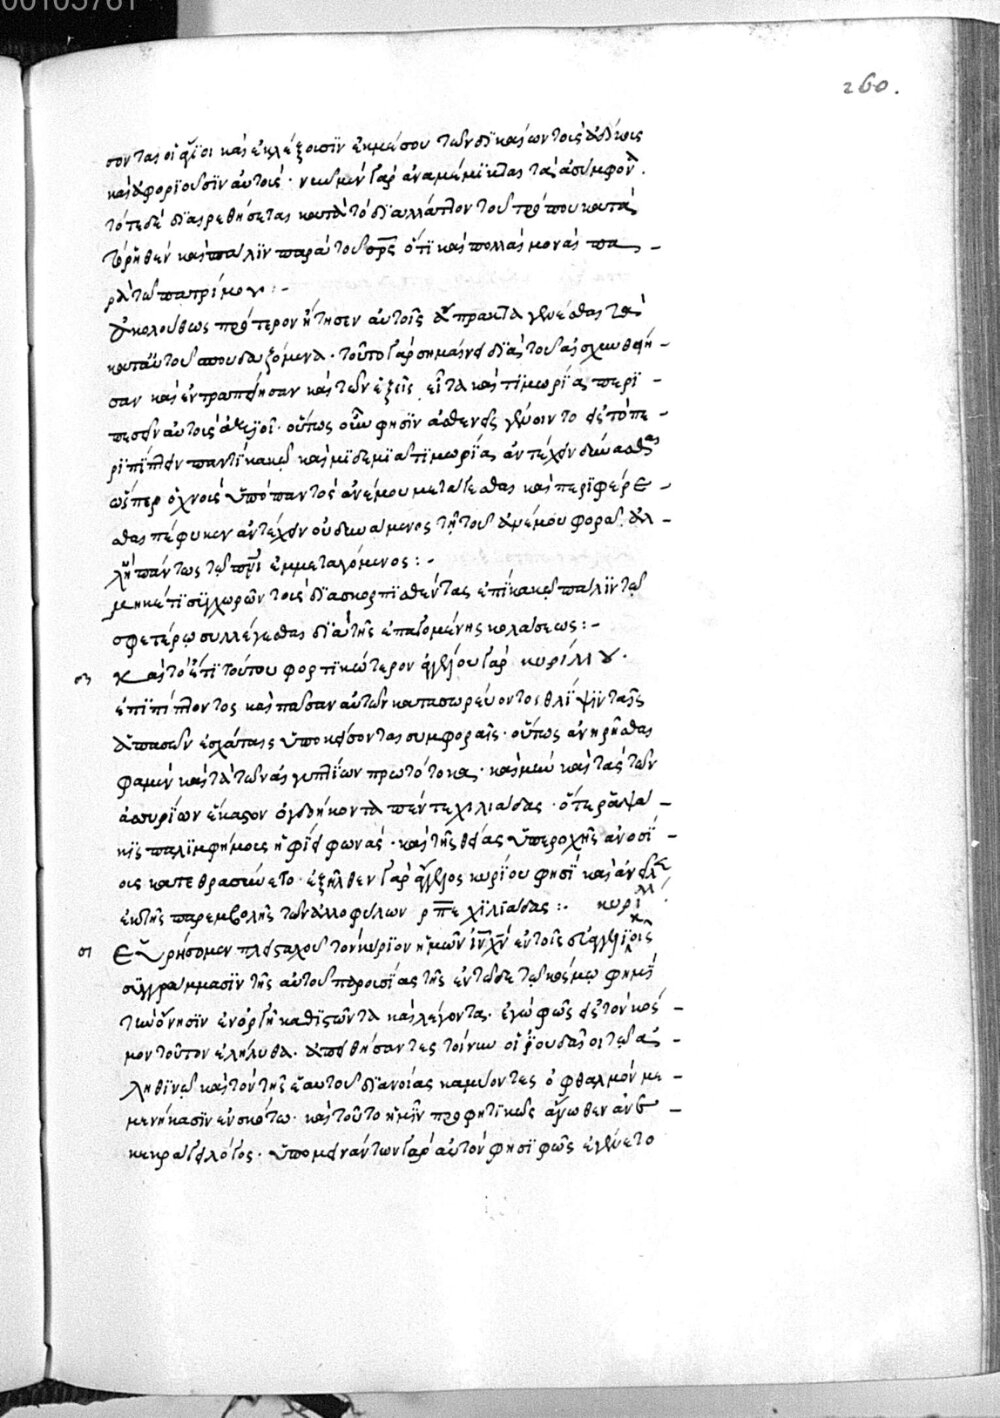 00105761
260.
σονται οἱ ἅγιοι καὶ ἐκλέξουσϊν ἐκμέσου τῶν δϊκαίων τοὺς ἀδίκους
καὶ ἀφορϊοῦσϊν αὐτούς· νῦν μὲν γὰρ ἀναμέμϊκται τὰ ἀσύμφον
τότε δὲ διαιρεθήσεται κατὰ τὸ διάλλαττον τοῦ τρόπου κατὰ
τὸ ῥηθὲν καὶ πάλϊν παρὰ τοῦ σρς ὅτϊ καὶ πολλαὶ μοναὶ πα
ρὰ τῷ πατρί μου :-
ἀκολούθως πρότερον ᾔτησεν αὐτοῖς ἄπρακτα γενέσθαι τὰ
κατ' αὐτοῦ σπουδαζόμενα· τοῦτο γὰρ σημαίνει διὰ τοῦ αἰσχυνθείη
σαν καὶ ἐντραπείησαν καὶ τῶν ἑξῆς εἶτα καὶ τϊμωρίᾳ περϊ
πεσεῖν αὐτοὺς οὕπως οὖν φησϊν ἀσθενεῖς γένοιντο εἰς τὸ πε
ρϊπίπτειν παντὶ κακῷ καὶ μϊδεμϊᾷ τϊμωρίᾳ ἀντέχειν δύνασθαι
ὥσπερ ὁ χνοῦς ὑπὸ παντὸς ἀνέμου μετάγεσθαι καὶ περϊφέρε
σθαι πέφυκεν ἀντέχειν οὐ δυνάμενος τῇ τοῦ ἀνέμου φορᾷ. ἀλ
λ' ἢ πάντως τῷ πνϊ ἐμμεταγόμενος :-
μηκέτϊ συγχωρῶν τοὺς διασκορπϊσθέντας ἐπὶ κακῷ πάλϊν τῷ
σφετέρῳ συλλέγεσθαι διὰ τῆς ἐπαγομένης κολάσεως :-
Καὶ τὸ ἔτϊ τούτου φορτϊκώτερον ἀγγέλου γὰρ κυρίλλου.
ἐπϊπίπτοντος καὶ πᾶσαν αὐτῶν κατασωρεύοντος θλίψϊν ταῖς
ἁπασῶν ἐσχάταις ὑποκείσονται συμφοραῖς· οὕτως ἀνῃρῆσθαι
φαμὲν καὶ τὰ τῶν αἰγυπτίων πρωτότοκα· καὶ μὴν καὶ τὰς τῶν
ἀσσυρίων εἴκασον ὀγδήκοντα πέντε χιλιάδας· ὅτε ῥαψά
κϊς παλϊμφήμους ἠφίει φωνὰς· καὶ τῆς θείας ὑπεροχῆς ἀνοσϊ
οις κατεθρασύνετο· ἐξῆλθεν γὰρ ἄγγελος κυρίου φησὶ καὶ ἀνεῖλε
ἐκ τῆς παρεμβολῆς τῶν ἀλλοφύλων ρπε χϊλϊάδας :. κυρίλλ
Εὑρήσομεν πλεισταχοῦ τὸν κύριον ἡμῶν ιν χν ἐν τοῖς εὐαγγελικοῖς
συγγράμμασϊν τῆς αὐτοῦ παρουσίας τῆς ἐν τῷδε τῷ κόσμῳ φημὶ
τὴν ὄνησϊν ἐναργῆ καθϊστῶντα καὶ λέγοντα. ἐγὼ φῶς εἰς τὸν κόσ
μον τοῦτον ἐλήλυθα. ἀπειθήσαντες τοίνυν οἱ ἰουδαῖοι τῷ ἀ
ληθϊνῷ καὶ τὸν τῆς ἑαυτοῦ διανοίας καμύοντες ὀφθαλμὸν με
μενήκασϊν ἐν σκότω· καὶ τοῦτο ἡμῖν προφητϊκῶς ἄνωθεν ἀν
κεκράγει λόγος· ὑπομεινάντων γὰρ αὐτὸν φησὶ φῶς ἐγένετο